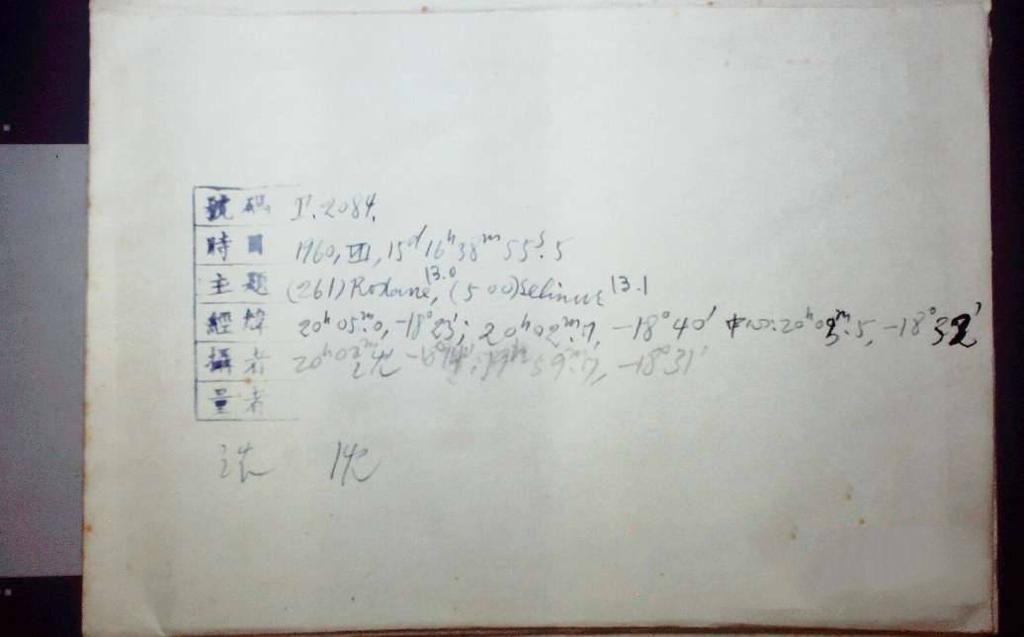 號碼 P. 2084.
時日 1960, VII, 15ᵈ 16ʰ 38ᵐ 55ˢ.5
主題 (261) Rodane, 13.0 (500) Selinur 13.1
經緯 20ʰ05ᵐ.0, -18°23′; 20ʰ02ᵐ.7, -18°40′ 中心: 20ʰ03ᵐ.5, -18°32′
攝者 20ʰ02ᵐ -18°14′; 19ʰ59ᵐ.7, -18°31′
量者